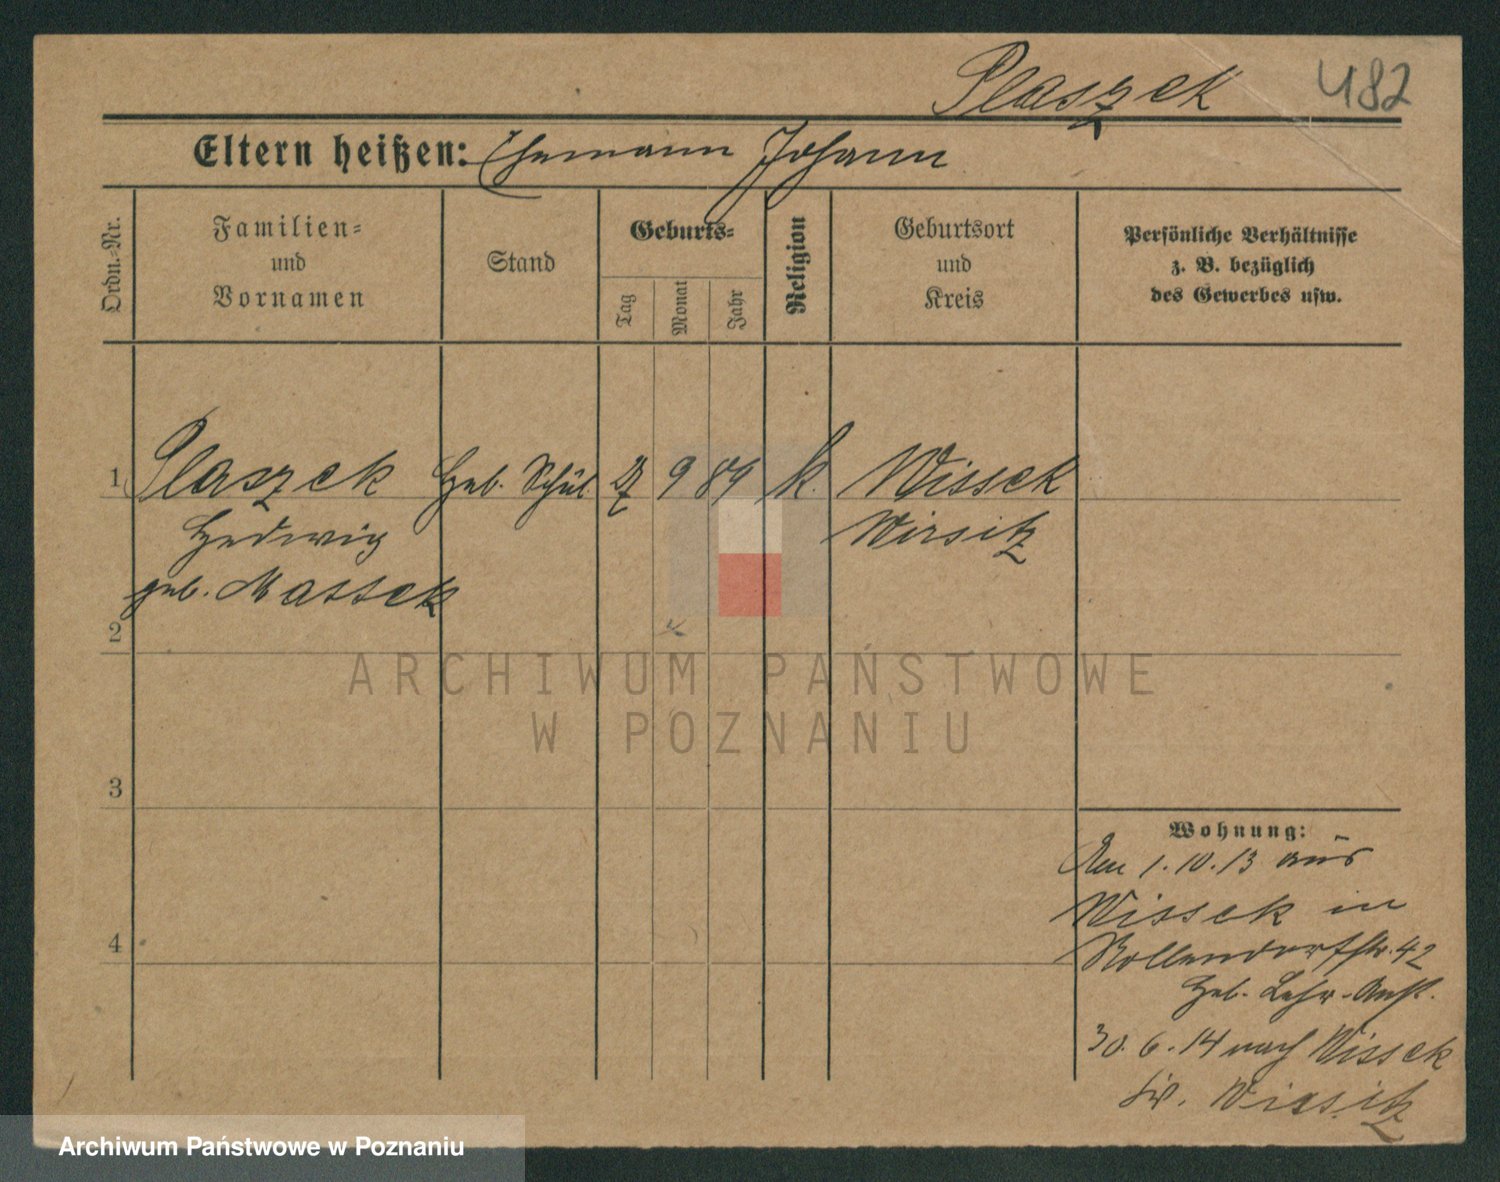 Plaszek 482
Eltern heißen: Ehemann Johann
Ordn.-Nr.
Familien-
und
Vornamen
Stand
Geburts-
Tag
Monat
Jahr
Religion
Geburtsort
und
Kreis
Persönliche Verhältnisse
z. B. bezüglich
des Gewerbes usw.
1 Plaszek Heb. Schül. 9 89 k. Wissek
Hedwig Wirsitz
geb. Massek
2
3
4
Wohnung:
Am 1.10.13 aus
Wissek in
Nollendorfstr. 42
Heb. Lehr-Anst.
30.6.14 nach Wissek
Kr. Wirsitz
ARCHIWUM PAŃSTWOWE
W POZNANIU
Archiwum Państwowe w Poznaniu